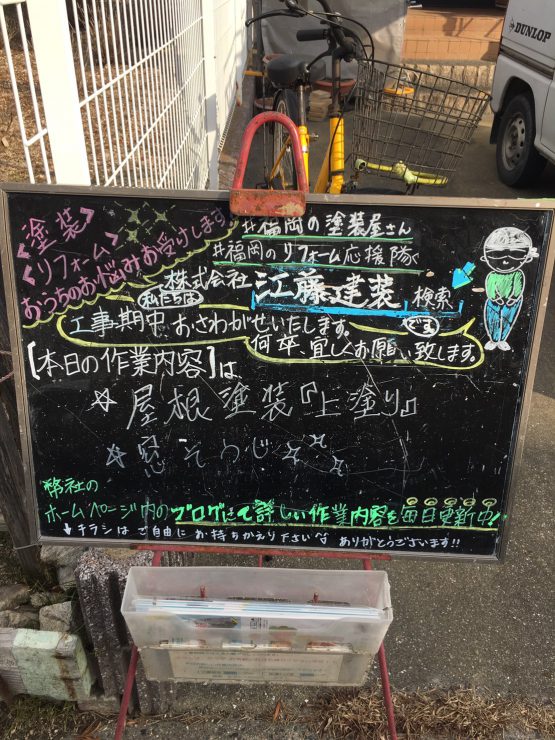 DUNLOP
〈塗装〉
〈リフォーム〉
おうちのお悩みお受けします
#福岡の塗装屋さん
#福岡のリフォーム応援隊
私たちは
株式会社 江藤建装 検索
です
工事期中、おさわがせいたします。
何卒、宜しくお願い致します。
【本日の作業内容】は、
☆屋根塗装『上塗り』
☆窓そうじ
弊社の
ホームページ内のブログにて詳しい作業内容を毎日更新中!
↓チラシはご自由にお持ちかえり下さい ありがとうございます!!